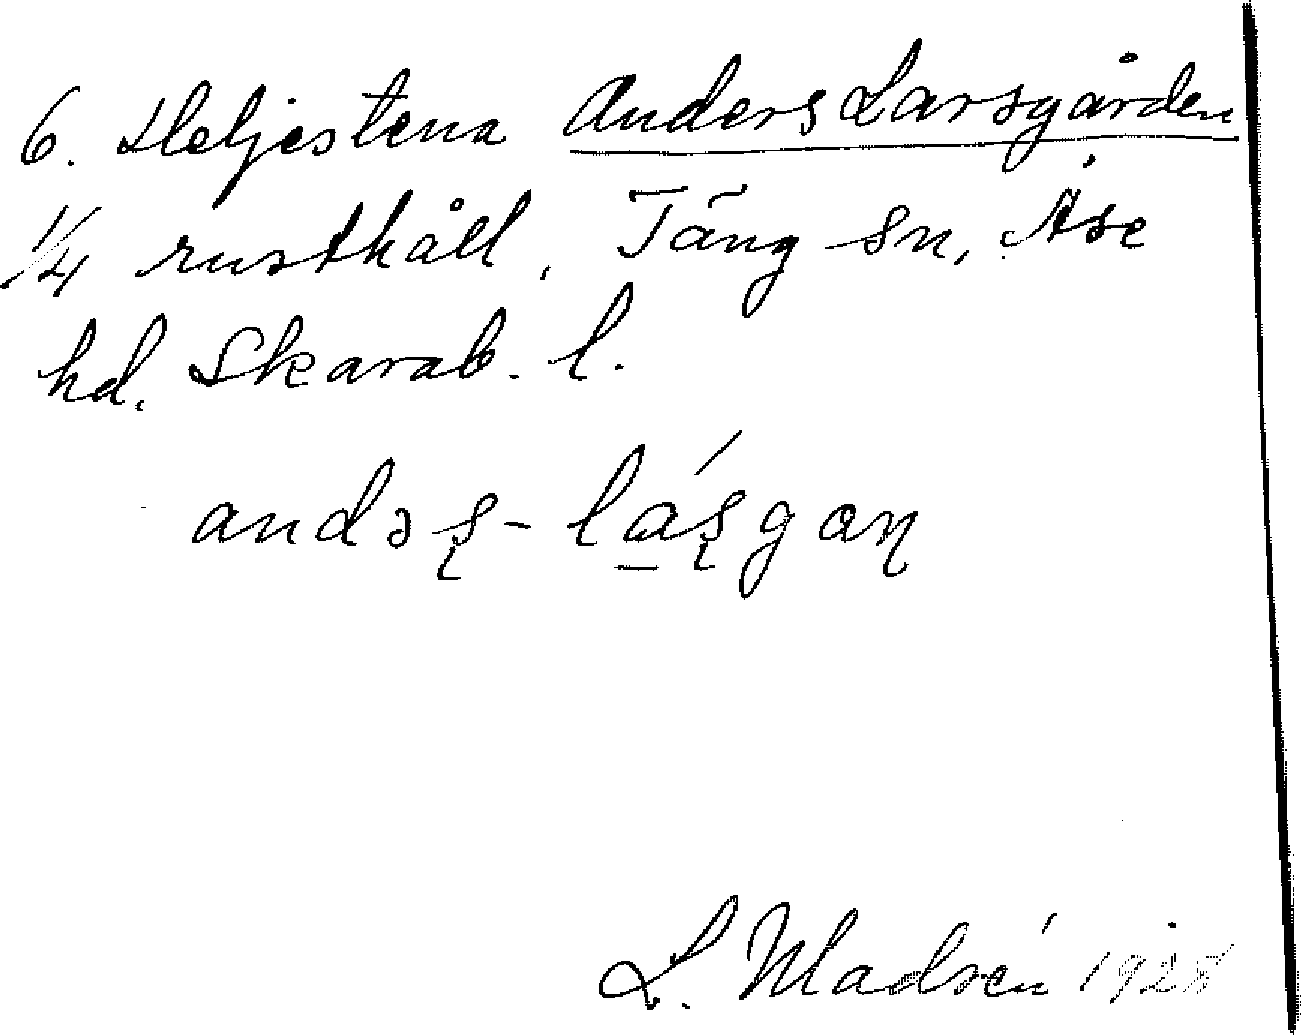 6. Heljestena Anders Larsgården
1/4 rusthåll, Täng sn, Åse
hd. Skarab. l.
andəʂ-lá̱ʂgaɳ
L. Madsén 1928